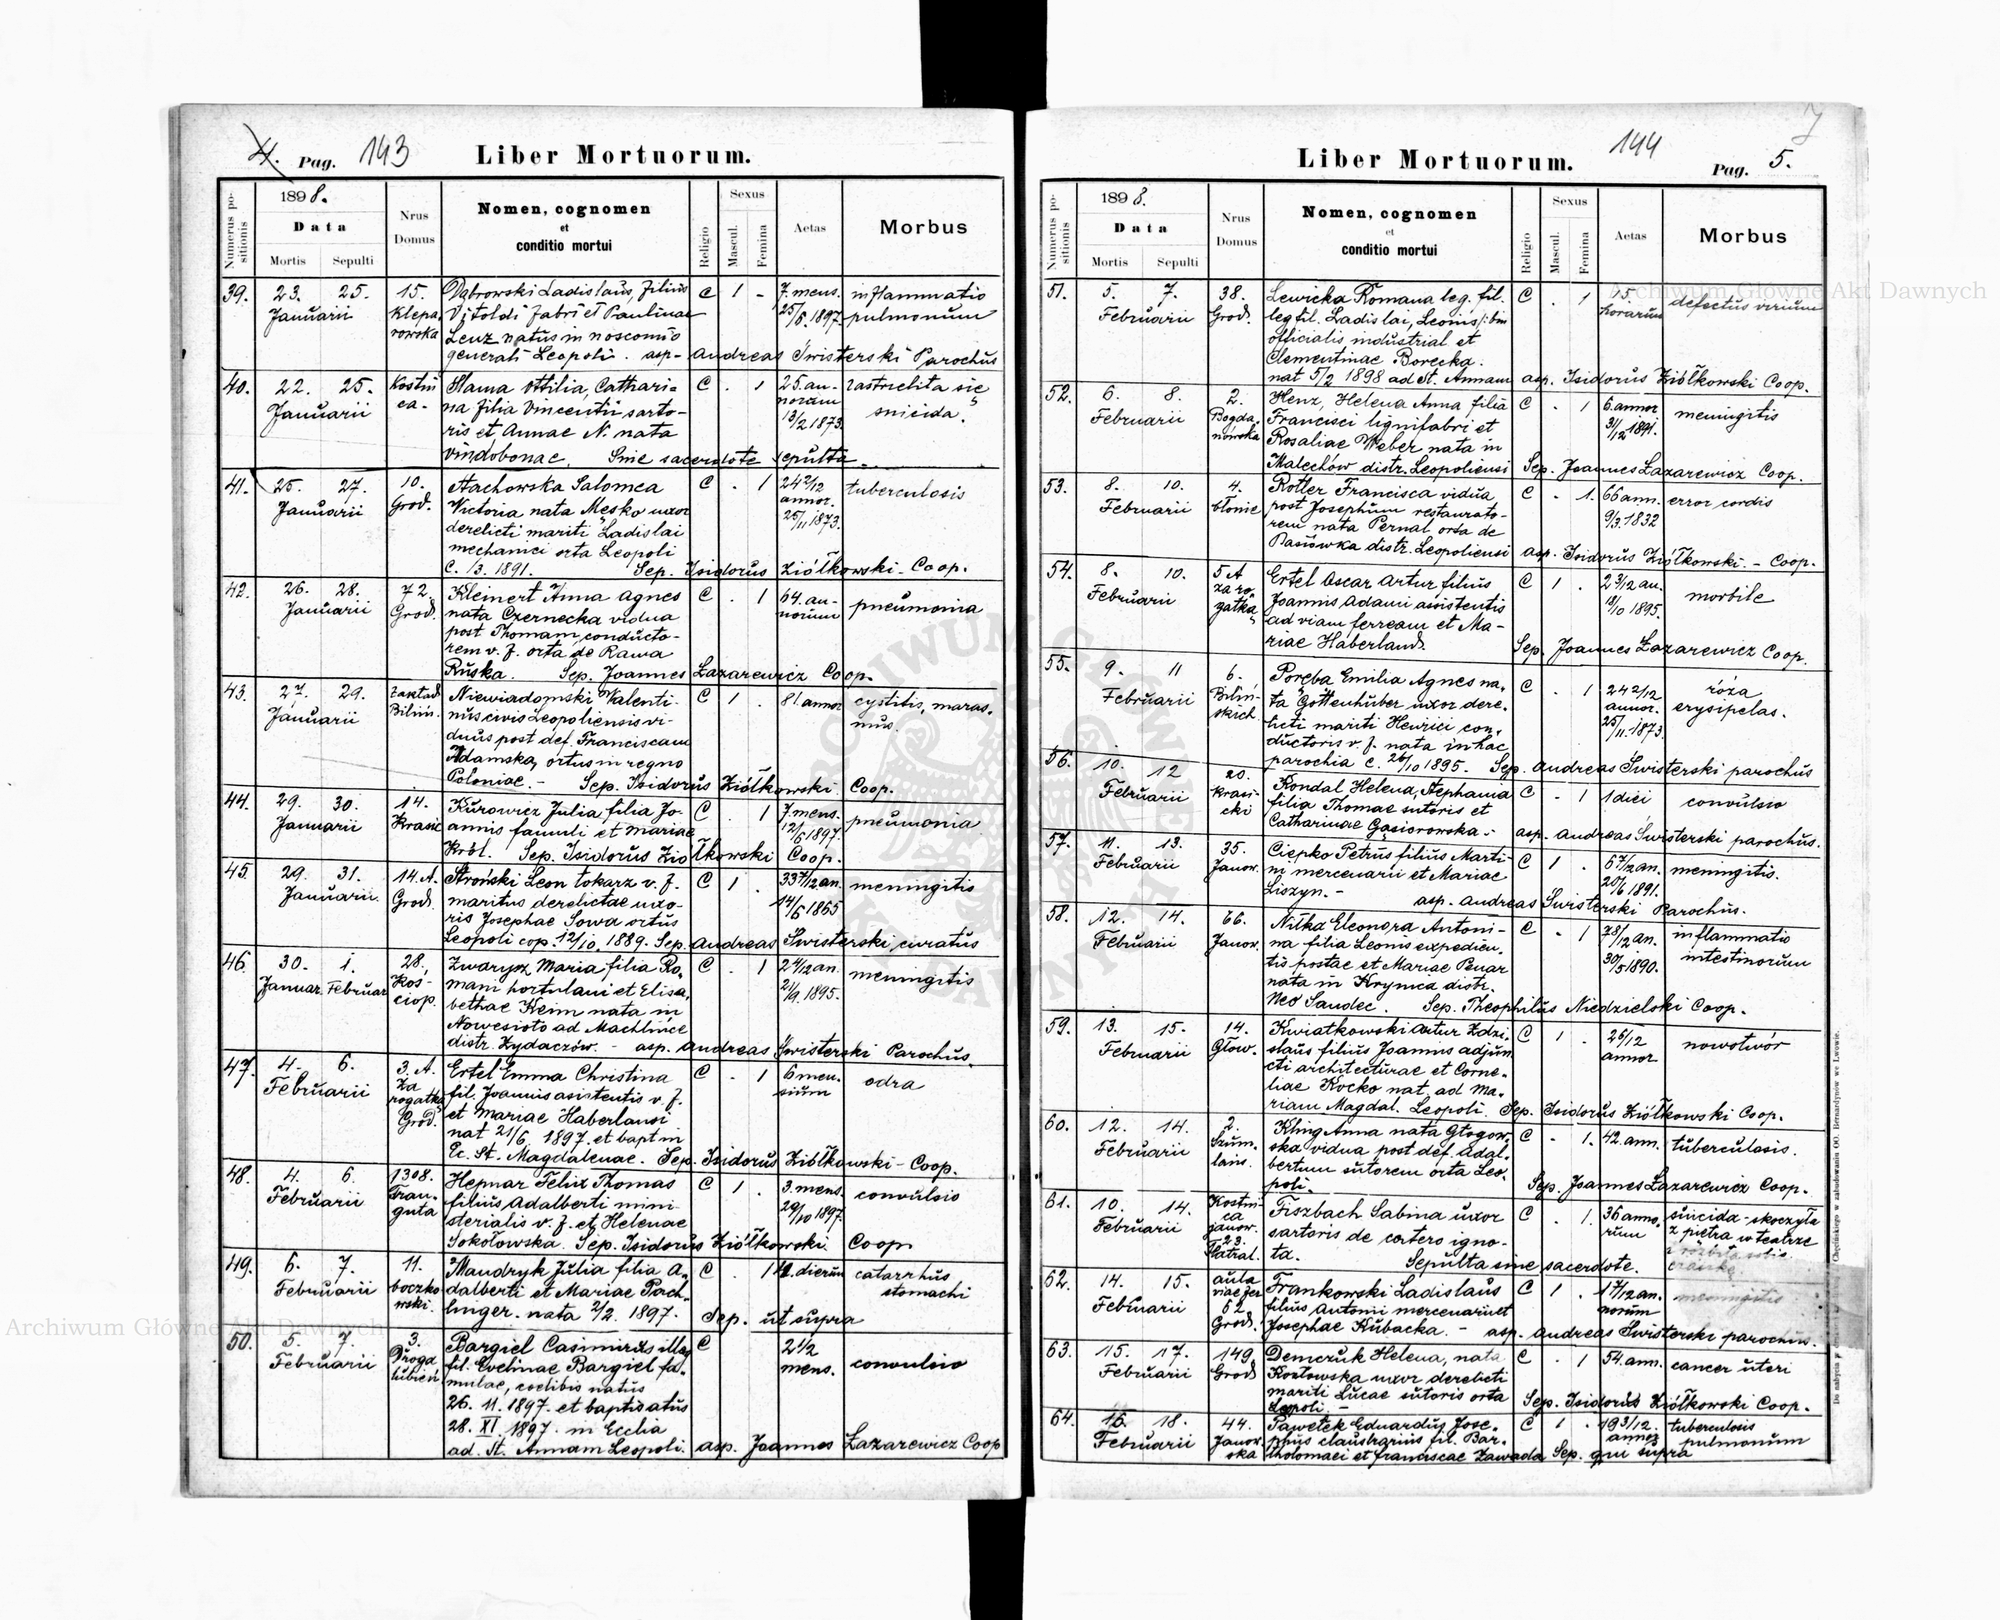 4. Pag. 143 Liber Mortuorum.
Numerus positionis
1898.
Data
Mortis Sepulti
Nrus Domus
Nomen, cognomen
et
conditio mortui
Religio
Sexus
Mascul. Femina
Aetas
Morbus
39. 23. 25. 15. Dąbrowski Ladislaus, filius C 1 - 7. mens. inflammatio
Januarii Klepa Vitoldi fabri et Paulinae 25/5. 1897. pulmonum
rowska Lenz natus in noscomio
generali Leopoli. asp- Andreas Świsterski Parochus
40. 22. 25. Kostni Slama Ottilia, Cathari= C . 1 25. an- zastrzeliła się
Januarii ca. na filia Vincentii sarto- norum suicida.
ris et Annae N. nata 13/2 1873.
Vindobonae. Sine sacerdote sepulta.
41. 25. 27. 10. Stachowska Salomea C . 1 24 2/12 tuberculosis
Januarii Grod. Victoria nata Mesko uxor annor.
derelicti mariti Ladislai 25/11 1873.
mechanici orta Leopoli
C. /3. 1891. Sep. Isidorus Ziółkowski - Coop.
42. 26. 28. 72. Kleinert Anna Agnes C . 1 64. an- pneumonia
Januarii Grod. nata Czernecka vidua norum
post Thomam conducto-
rem v. f. orta de Rawa
Ruska. Sep. Joannes Łazarewicz Coop.
43. 27. 29. Zakład Niewiadomski Valenti- C 1 . 81. annor cystitis, maras-
Januarii Biliń. nus civis Leopoliensis vi- mus.
duus post def. Franciscam
Adamska, ortus in regno
Poloniae. - Sep. Isidorus Ziółkowski Coop.
44. 29. 30. 14. Kurowicz Julia filia Jo- C . 1 7. mens. pneumonia
Januarii Krasic annis famuli et Mariae 12/5 1897.
Król. Sep. Isidorus Ziółkowski Coop.
45. 29. 31. 14. A. Stroński Leon tokarz v. f. C 1 . 33 7/12 an. meningitis
Januarii. Grod. maritus derelictae uxo- 14/5 1865
ris Josephae Sowa ortus
Leopoli cop. 12/10. 1889. Sep. Andreas Świsterski, curatus
46. 30. 1. 28. Zwarysz Maria filia Ro- C . 1 2 4/12 an. meningitis
Januar. Februar Kos- mani hortulani et Elisa- 21/9. 1895.
ciop. bethae Keim nata in
Nowesioło ad Machlińce
distr. Żydaczów. - asp. Andreas Świsterski Parochus.
47. 4. 6. 3. A. Ertel Emma Christina C . 1 6 men- odra
Februarii Za fil. Joannis asistentis v. f. sium
rogatką et Mariae Haberlandi
Grod. nat 21/6 1897. et bapt in
Ec. St. Magdalenae. Sep. Isidorus Ziółkowski - Coop.
48. 4. 6. 1308. Hepnar Felix Thomas C 1 . 3. mens. convulsio
Februarii Fran- filius Adalberti mini- 29/10 1897.
guta sterialis v. f. et Helenae
Sokołowska. Sep. Isidorus Ziółkowski Coop
49. 6. 7. 11. Mandryk Julia filia A- C . 1 4. dierum catarrhus
Februarii boczko dalberti et Mariae Pach- stomachi
wski. linger. nata 2/2. 1897. Sep. ut supra
50. 5. 7. 3. Bargiel Casimirus illeg C 2 1/2 convulsio
Februarii Droga fil. Evelinae Bargiel fa- mens.
lubień mulae, coelibis natus
26. 11. 1897. et baptisatus
28. XI. 1897. in Ecclia
ad. St. Annam Leopoli. asp. Joannes Łazarewicz Coop
Liber Mortuorum. 144 Pag. 5.
Numerus positionis
1898.
Data
Mortis Sepulti
Nrus Domus
Nomen, cognomen
et
conditio mortui
Religio
Sexus
Mascul. Femina
Aetas
Morbus
51. 5. 7. 38. Lewicka Romana leg. fil. C . 1 15. defectus virium
Februarii Grod. leg fil. Ladislai, Leonis
horarum
officialis industrial et
Clementinae Borecka.
nat 5/2 1898 ad St. Annam asp. Isidorus Ziółkowski Coop.
52. 6. 8. 2. Henz, Helena Anna filia C . 1 6. annor meningitis
Februarii Bogda- Francisci lignifabri et 31/12 1891.
nówska Rosaliae Weber nata in
Malechów distr. Leopoliensi Sep. Joannes Łazarewicz Coop.
53. 8. 10. 4. Rotter Francisca vidua C . 1. 66 ann. error cordis
Februarii błonie post Josephum restaurato- 9/3. 1832
rem nata Pernal orta de
Basiówka distr. Leopoliensi asp. Isidorus Ziółkowski. - Coop.
54. 8. 10. 5 A Ertel Oscar Artur filius C 1 . 2 3/12 an. morbile
Februarii za ro Joannis Adami assistentis 18/10 1895.
gatką ad viam ferream et Ma-
riae Haberland. Sep. Joannes Łazarewicz Coop.
55. 9. 11 6. Poręba Emilia Agnes na- C . 1 24 2/12 róża
Februarii Biliń- ta Gottenhuber uxor dere- annor. erysipelas.
skich. licti mariti Henrici con- 25/11. 1873.
ductoris v. f. nata in hac
parochia c. 26/10 1895. Sep. Andreas Świsterski parochus
56. 10. 12 20. Kondal Helena, Stephania C . 1 1 diei convulsio
Februarii Krasi- filia Thomae sutoris et
cki Catharinae Gąsiorowska.- asp. Andreas Świsterski parochus.
57. 11. 13. 35. Ciepko Petrus filius Marti- C 1 . 6 7/12 an. meningitis.
Februarii Janow. ni mercenarii et Mariae 20/6 1891.
Liszyn. - asp. Andreas Świsterski Parochus.
58. 12. 14. 66. Nitka Eleonora Antoni- C . 1 7 8/12 an. inflammatio
Februarii Janow. na filia Leonis expedien- 30/5 1890. intestinorum
tis postae et Mariae Penar
nata in Krynica distr.
Neo Sandec. Sep. Theophilus Niedzielski Coop.
59. 13. 15. 14. Kwiatkowski Artur Zdzi- C 1 . 2 6/12 nowotwór
Februarii Głow. slaus filius Joannis adjun annor
cti architecturae et Corne-
liae Kocko nat. ad Ma-
riam Magdal. Leopoli. Sep. Isidorus Ziółkowski Coop.
60. 12. 14. 2. Kling Anna nata Głogow- C . 1. 42. ann. tuberculosis.
Februarii Szum- ska vidua post def. Adal-
lańs. bertum sutorem orta Leo-
poli. Sep. Joannes Łazarewicz Coop.
61. 10. 14. Kostni- Fiszbach Sabina uxor C . 1. 36 anno- suicida - skoczyła
Februarii ca sartoris de cetero igno- rum z piętra w teatrze
janow. ta. Sepulta sine sacerdote.
23.
Teatral.
62. 14. 15. aula Frankowski Ladislaus C 1 . 1 7/12 an. meningitis
Februarii viae fer filius Antonii mercenarii et norum
62 Josephae Kubacka. - asp. Andreas Świsterski parochus.
Grod.
63. 15. 17. 149 Demczuk Helena, nata C . 1 54. ann. cancer uteri
Februarii Grod Kozłowska uxor derelicti
mariti Lucae sutoris orta
Leopoli. - Sep. Isidorus Ziółkowski Coop.
64. 16. 18. 44. Pawełek Eduardus Jose- C 1 . 19 3/12. tuberculosis
Februarii Janow- phus claustrarius fil. Bar- annor pulmonum
ska tholomaei et Franciscae Zawada Sep. qui supra
Archiwum Główne Akt Dawnych
Archiwum Główne Akt Dawnych
ARCHIWUM GŁÓWNE AKT DAWNYCH